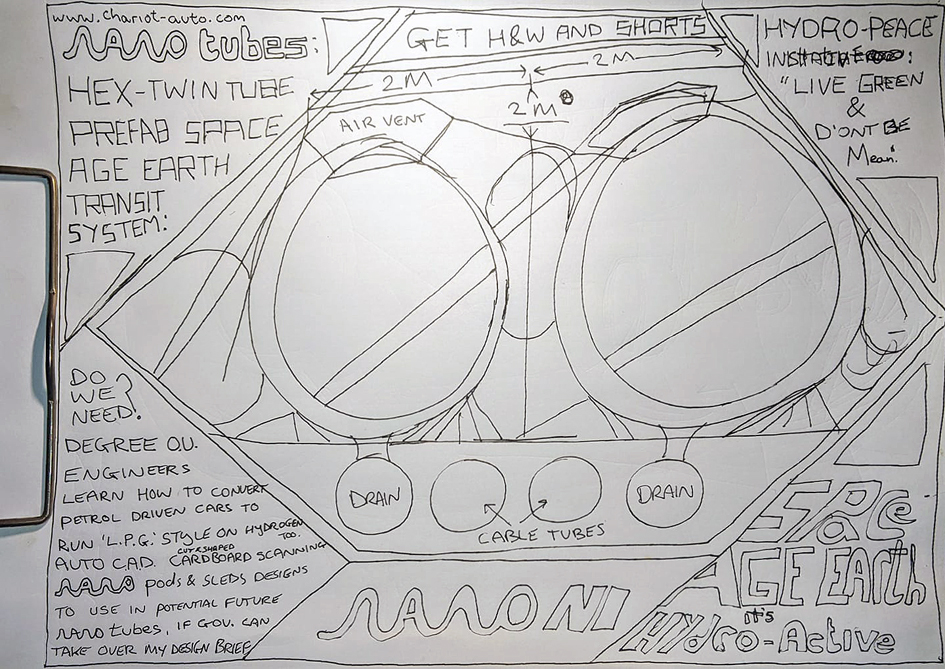 www.chariot-auto.com
NANO tubes:
HEX-TWIN TUBE
PREFAB SPACE
AGE EARTH
TRANSIT
SYSTEM:
GET H&W AND SHORTS
2M
2M
2M
AIR VENT
HYDRO-PEACE
"LIVE GREEN
&
D'ONT BE
Mean."
DO
WE
NEED?
DEGREE O.U.
ENGINEERS
LEARN HOW TO CONVERT
PETROL DRIVEN CARS TO
RUN 'L.P.G.' STYLE ON HYDROGEN
TOO.
CUT & SHAPED
AUTO CAD. CARDBOARD SCANNING
NANO pods & SLEDS DESIGNS
TO USE IN POTENTIAL FUTURE
NANO tubes, IF GOV. CAN
TAKE OVER MY DESIGN BRIEF
DRAIN
DRAIN
CABLE TUBES
NANO NI
SPAce
AGE EARth
it's
HYdro-Active